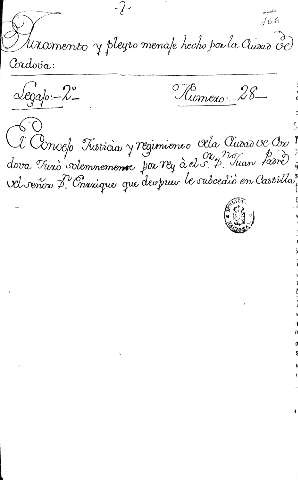 -7-
166
Juramento y pleyto menaje hecho por la Ciudad de
Cordova:
Legajo: 2º
Numero: 28
El Concejo Justicia y regimiento dela Ciudad de Cor
dova Juró solemnemente por rey á el S.or D.n Juan Padre
del señor D.n Enrrique que despues le subcedió en Castilla